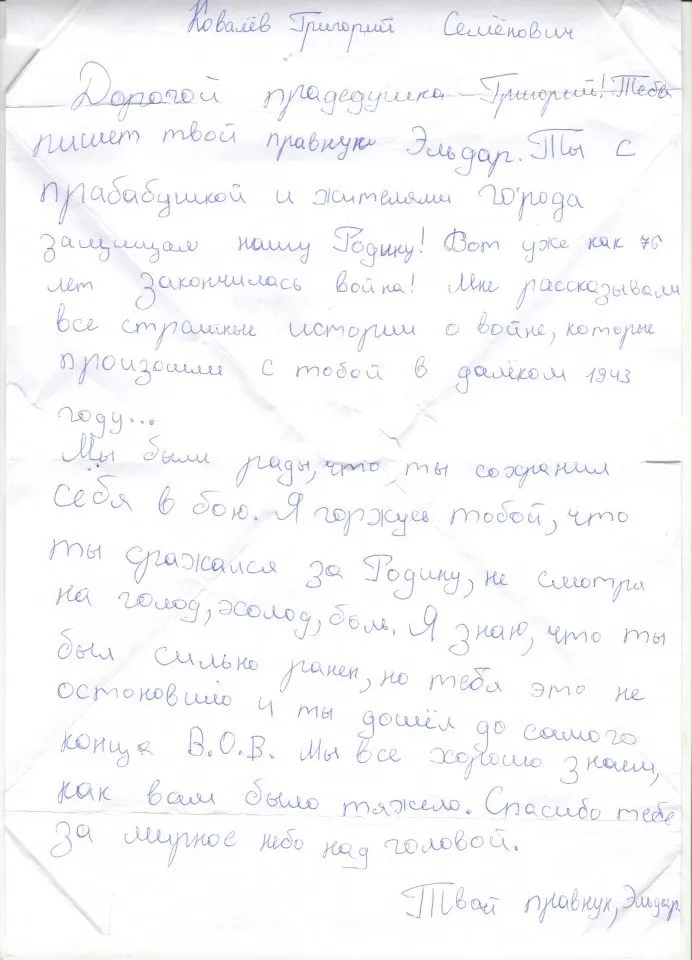 Ковалёв Григорий Семёнович
Дорогой прадедушка Григорий! Тебе
пишет твой правнук Эльдар. Ты с
прабабушкой и жителями города
защищал нашу Родину! Вот уже как 76
лет закончилась война! Мне рассказывали
все страшные истории о войне, которые
произошли с тобой в далёком 1943
году...
Мы были рады, что ты сохранил
себя в бою. Я горжусь тобой, что
ты сражался за Родину, не смотря
на голод, холод, боль. Я знаю, что ты
был сильно ранен, но тебя это не
остоновило и ты дошёл до самого
конца В.О.В. Мы все хорошо знаем,
как вам было тяжело. Спасибо тебе
за мирное небо над головой.
Твой правнук, Эльдар